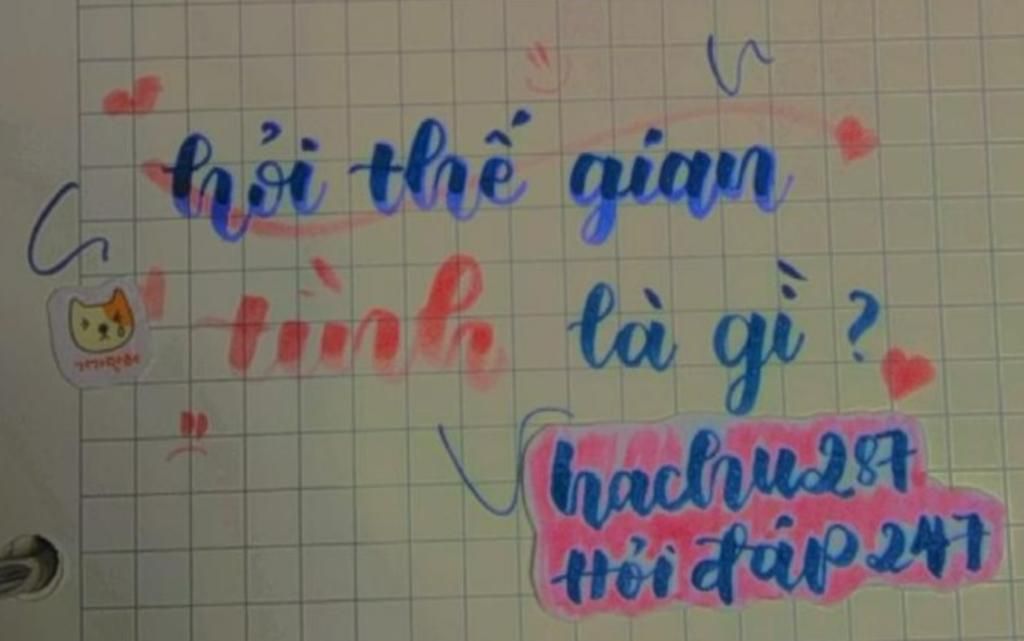 hỏi thế gian
tình là gì ?
hachu287
Hỏi đáp 247